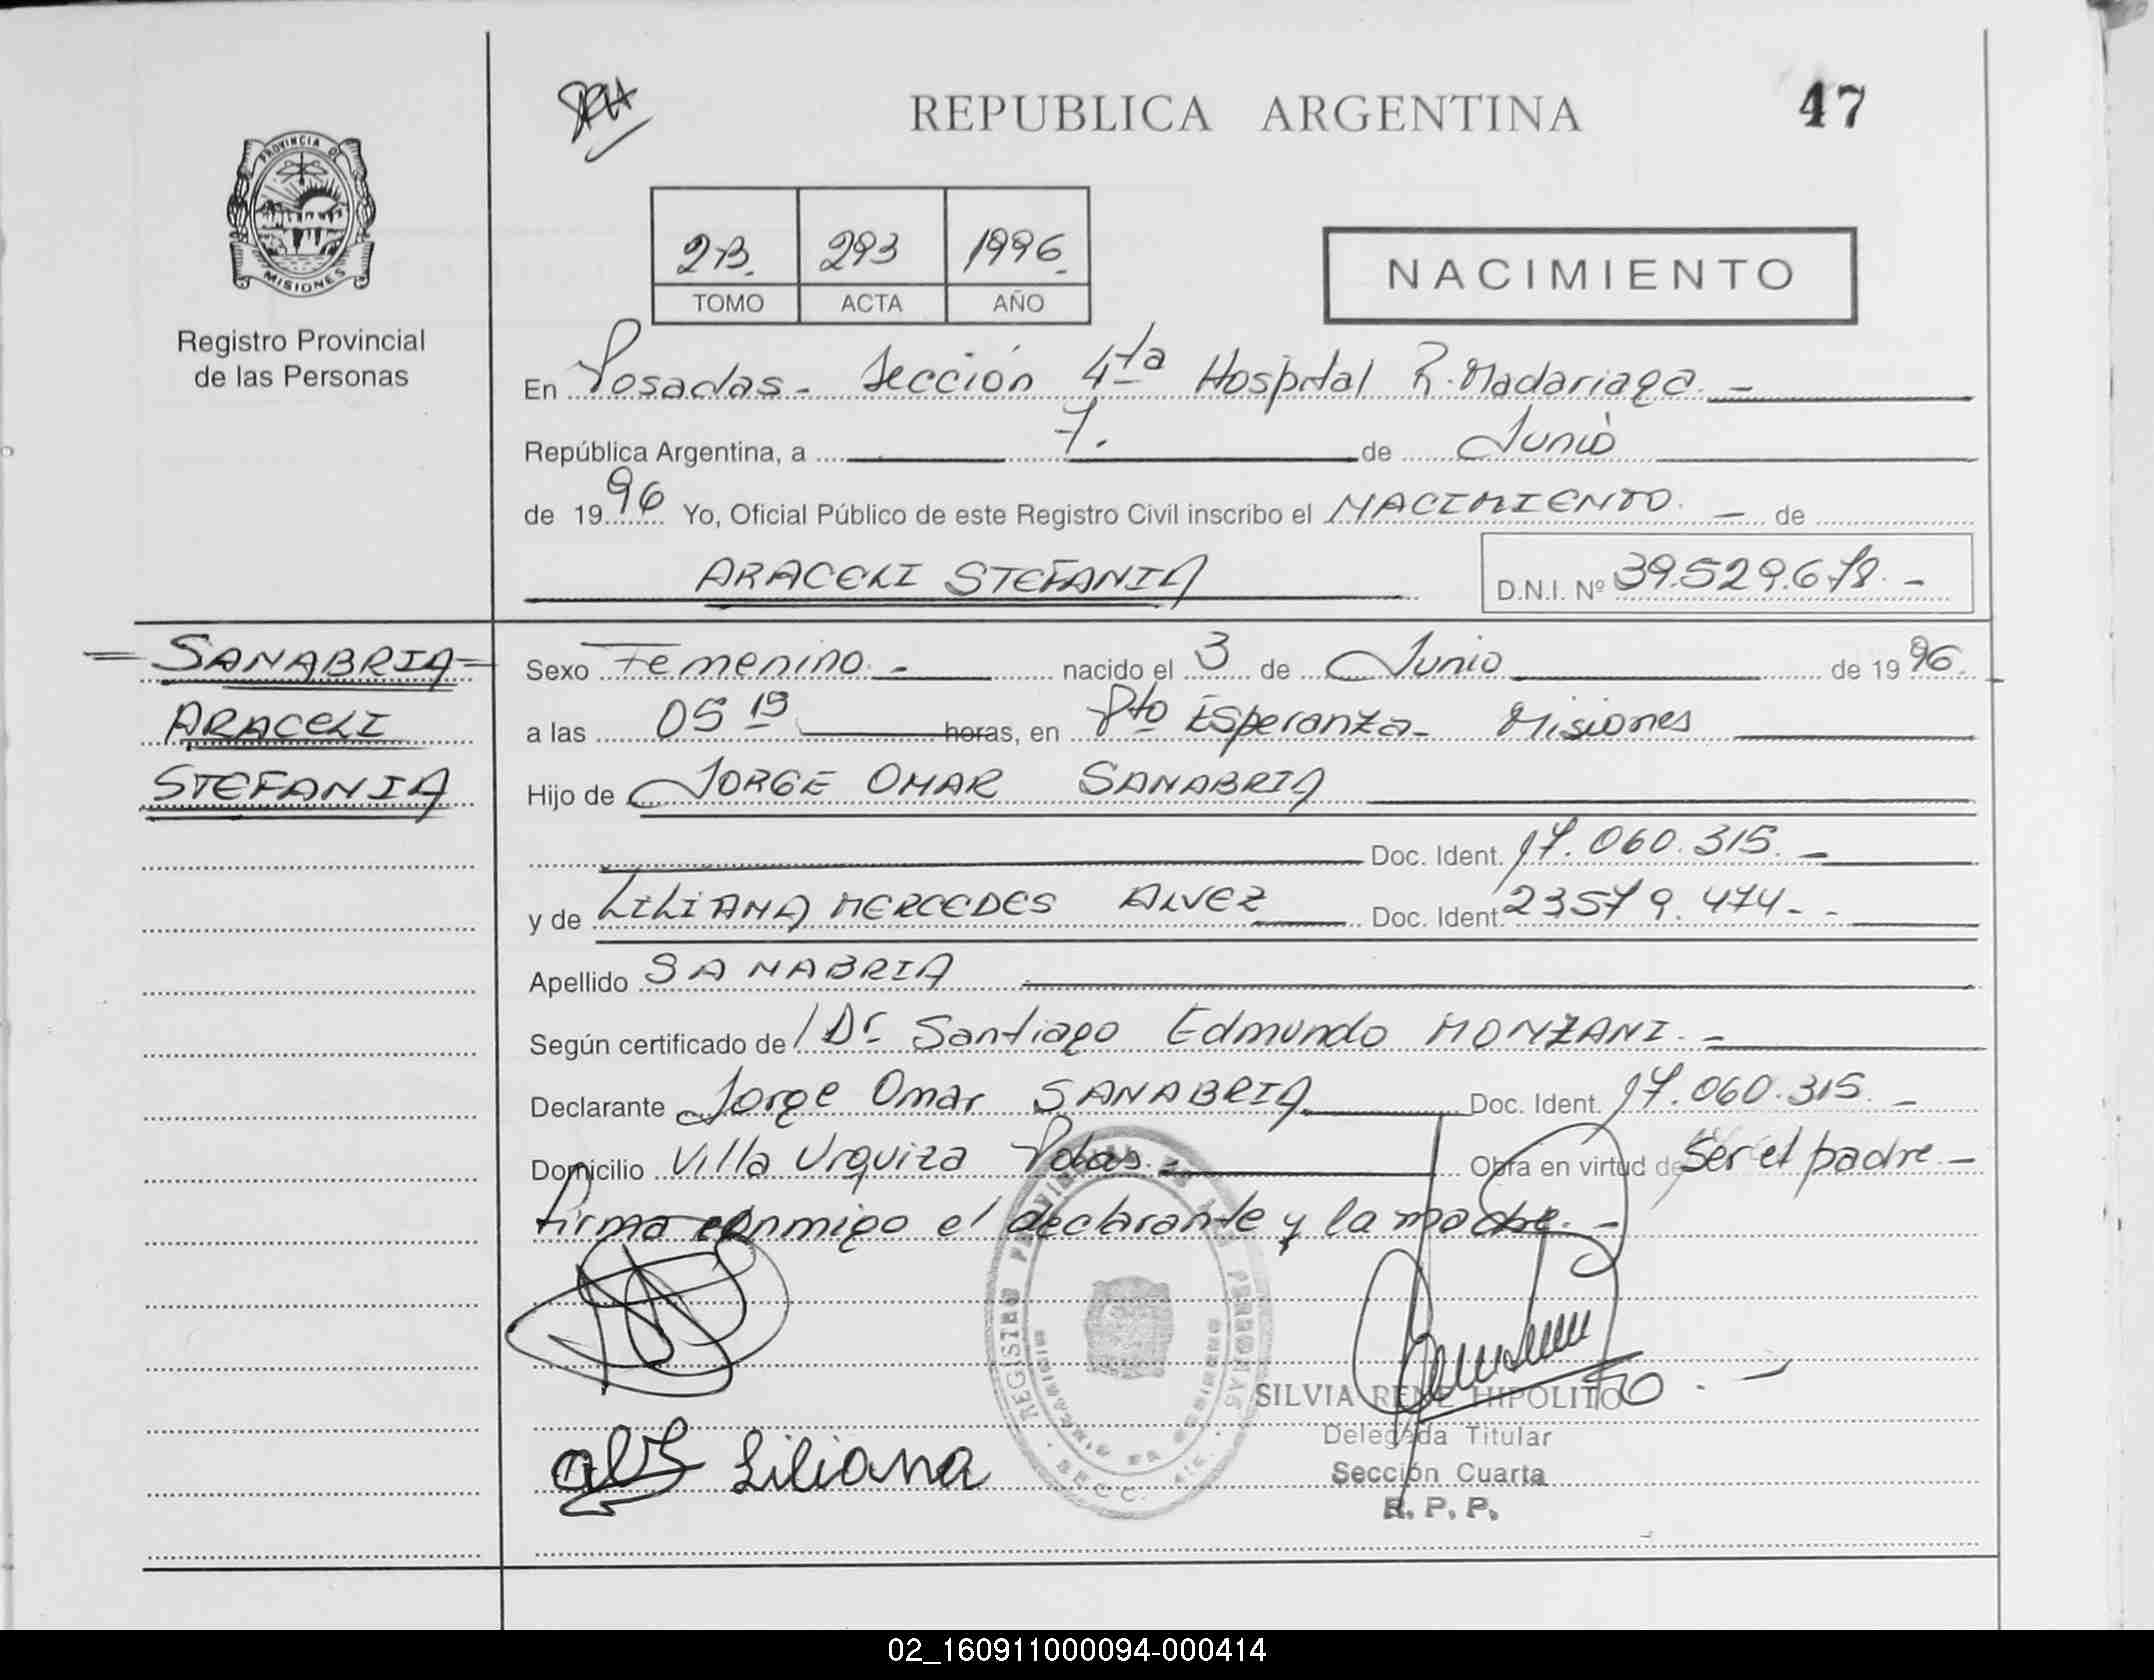 REPUBLICA ARGENTINA
47
PROVINCIA DE
MISIONES
Registro Provincial
de las Personas
2B. 293 1996.
TOMO ACTA AÑO
NACIMIENTO
En Posadas - Sección 4ta Hospital R. Madariaga. -
República Argentina, a 7. de Junio
de 1996 Yo, Oficial Público de este Registro Civil inscribo el NACIMIENTO. - de
ARACELI STEFANIA D.N.I. Nº 39.529.678. -
= SANABRIA =
ARACELI
STEFANIA
Sexo Femenino. - nacido el 3 de Junio de 1996.
a las 05 19 horas, en Pto Esperanza - Misiones
Hijo de JORGE OMAR SANABRIA
Doc. Ident. 17.060.315. -
y de LILIANA MERCEDES ALVEZ Doc. Ident. 23579.474 - -
Apellido SANABRIA
Según certificado de / Dr Santiago Edmundo MONZANI. -
Declarante Jorge Omar SANABRIA Doc. Ident. 17.060.315. -
Domicilio Villa Urquiza Pdas. - Obra en virtud de Ser el padre -
firma conmigo el declarante y la madre. -
REGISTRO PROVINCIAL DE LAS PERSONAS
SECC. 4ta.
SILVIA RENE HIPOLITO
Delegada Titular
Sección Cuarta
R. P. P.
Liliana
02_160911000094-000414